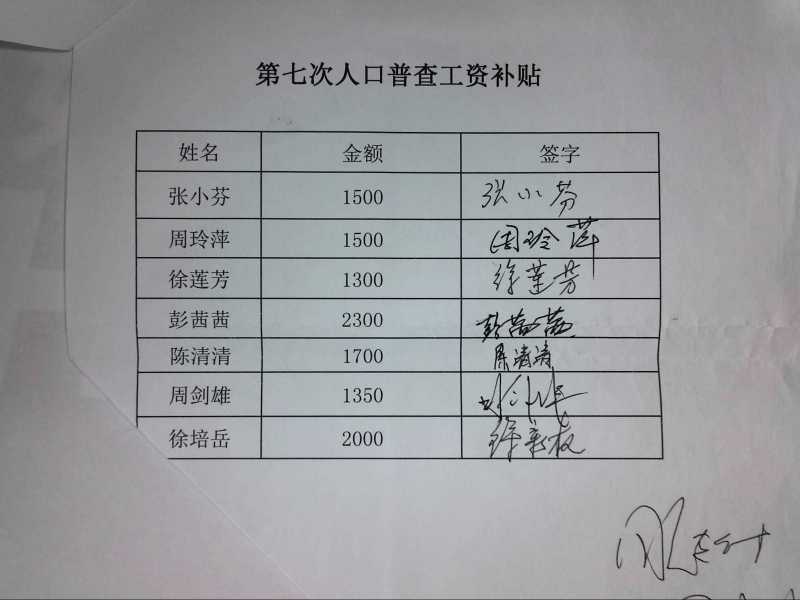 第七次人口普查工资补贴
姓名 金额 签字
张小芬 1500 张小芬
周玲萍 1500 周玲萍
徐莲芳 1300 徐莲芳
彭茜茜 2300 彭茜茜
陈清清 1700 陈清清
周剑雄 1350
徐培岳 2000